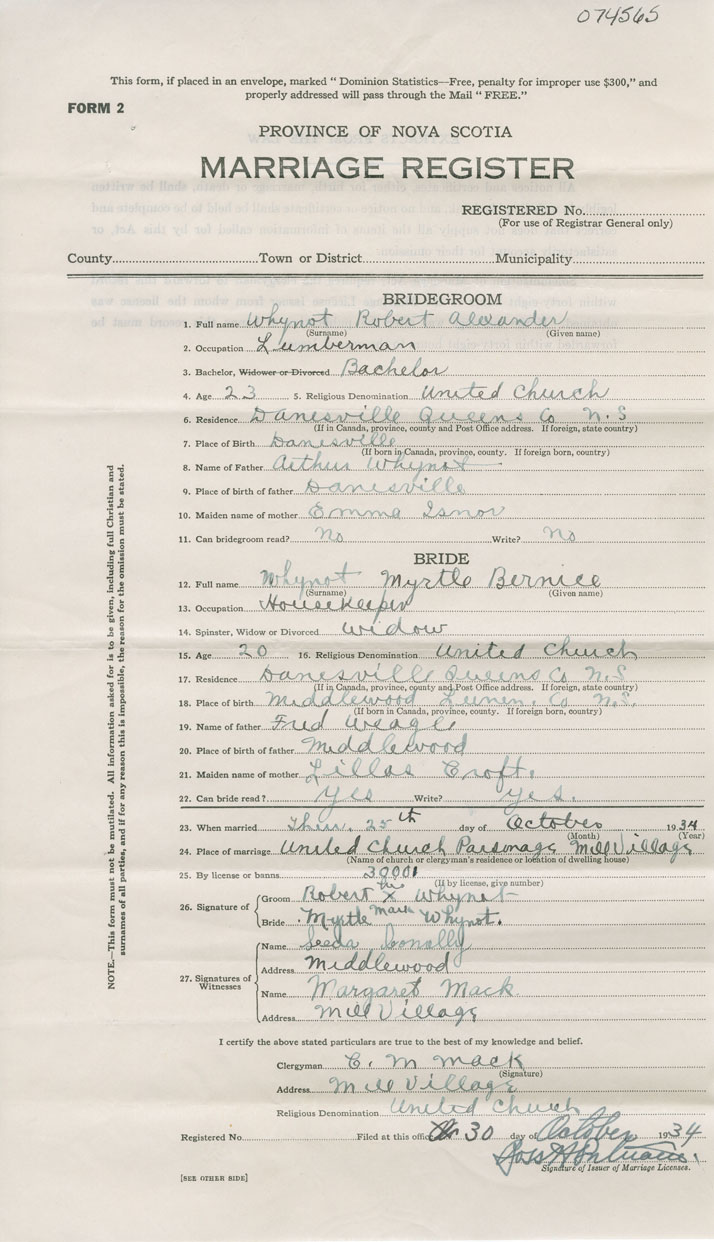 074565
This form, if placed in an envelope, marked “ Dominion Statistics—Free, penalty for improper use $300,” and
properly addressed will pass through the Mail “ FREE.”
FORM 2
PROVINCE OF NOVA SCOTIA
MARRIAGE REGISTER
REGISTERED No.
(For use of Registrar General only)
County Town or District Municipality
BRIDEGROOM
1. Full name Whynot Robert Alexander
(Surname) (Given name)
2. Occupation Lumberman
3. Bachelor, Widower or Divorced Bachelor
4. Age 23 5. Religious Denomination United Church
6. Residence Danesville Queens Co N.S
(If in Canada, province, county and Post Office address. If foreign, state country)
7. Place of Birth Danesville
(If born in Canada, province, county. If foreign born, country)
8. Name of Father Arthur Whynot
9. Place of birth of father Danesville
10. Maiden name of mother Emma Isnor
11. Can bridegroom read? No Write? No
BRIDE
12. Full name Whynot Myrtle Bernice
(Surname) (Given name)
13. Occupation Housekeeper
14. Spinster, Widow or Divorced Widow
15. Age 20 16. Religious Denomination United Church
17. Residence Danesville Queens Co N.S
(If in Canada, province, county and Post Office address. If foreign, state country)
18. Place of birth Middlewood Lunen. Co N.S.
(If born in Canada, province, county. If foreign born, country)
19. Name of father Fred Weagle
20. Place of birth of father Middlewood
21. Maiden name of mother Lillas Croft.
22. Can bride read? Yes Write? Yes.
23. When married Thur. 25th day of October 1934
(Month) (Year)
24. Place of marriage United Church Parsonage Mill Village
(Name of church or clergyman's residence or location of dwelling house)
25. By license or banns 30001
(If by license, give number)
26. Signature of
Groom Robert his X mark Whynot
Bride Myrtle Whynot.
27. Signatures of Witnesses
Name
Address Middlewood
Name Margaret Mack
Address Mill Village
I certify the above stated particulars are true to the best of my knowledge and belief.
Clergyman C. M Mack
(Signature)
Address Mill Village
Religious Denomination United Church
Registered No. Filed at this office 30 day of October 1934
Signature of Issuer of Marriage Licenses.
[SEE OTHER SIDE]
NOTE.—This form must not be mutilated. All information asked for is to be given, including full Christian and
surnames of all parties, and if for any reason this is impossible, the reason for the omission must be stated.